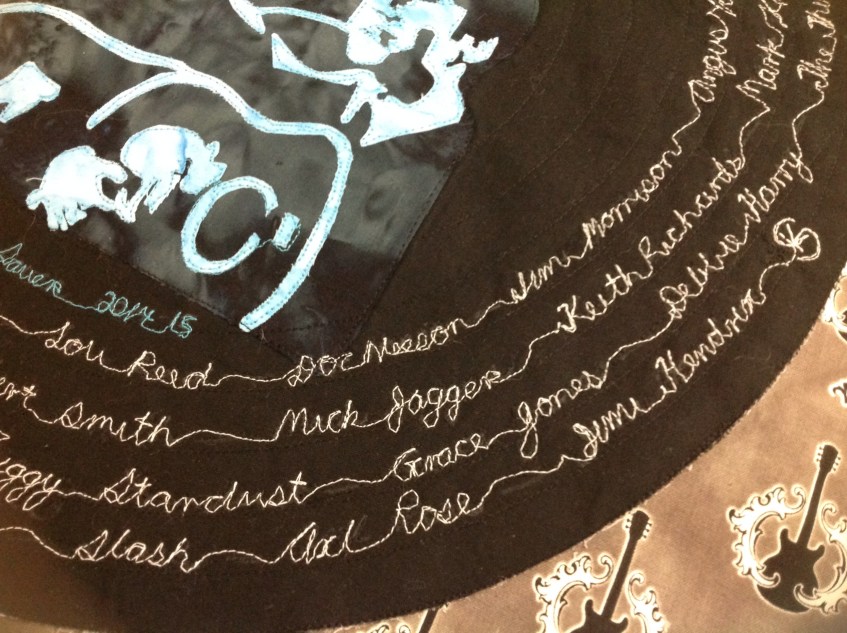 Sauer 2014 15
Lou Reed Doc Neeson Jimi Morrison Angus
Smith Mick Jagger Keith Richards Mark
Ziggy Stardust Grace Jones Debbie Harry The
Slash Axl Rose Jimi Hendrix